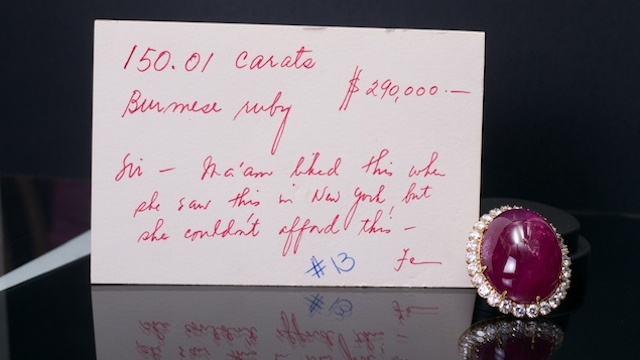 150.01 carats
$290,000.—
Burmese ruby
Sir — Ma'am liked this when
she saw this in New York, but
she couldn't afford this —
#13
Fe